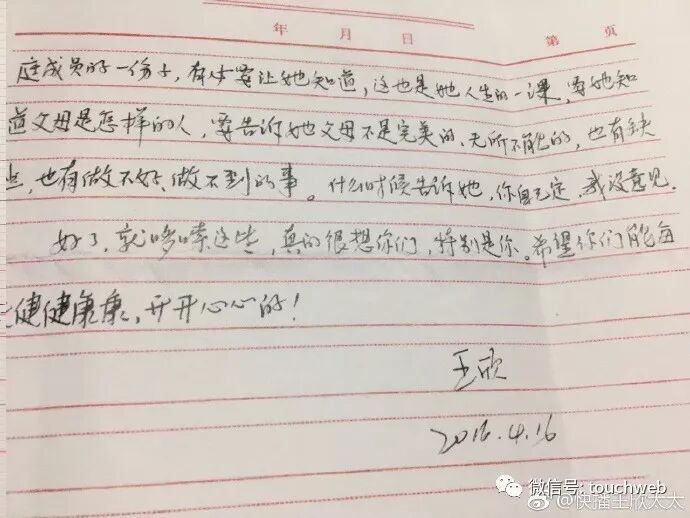 年 月 日 第 页
庭成员的一份子，有必要让她知道，这也是她人生的一课，要她知
道父母是怎样的人，要告诉她父母不是完美的、无所不能的，也有缺
点，也有做不好、做不到的事。什么时候告诉她，你自己定，我没意见．
好了，就哆嗦这些，真的很想你们，特别是你。希望你们能每
天健健康康，开开心心的！
王欣
2016.4.16
微信号: touchweb
@快播王欣太太